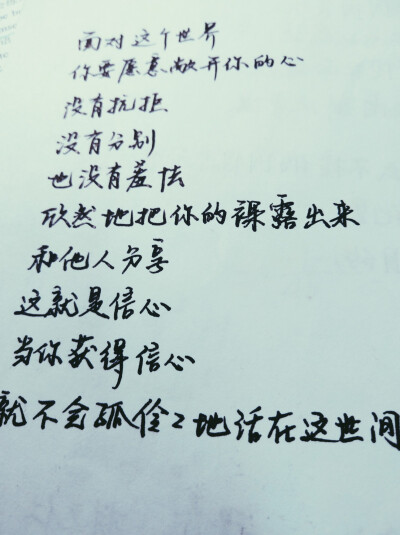 面对这个世界
你要愿意敞开你的心
没有抗拒
没有分别
也没有羞怯
欣然地把你的裸露出来
和他人分享
这就是信心
当你获得信心
就不会孤伶々地话在这世间